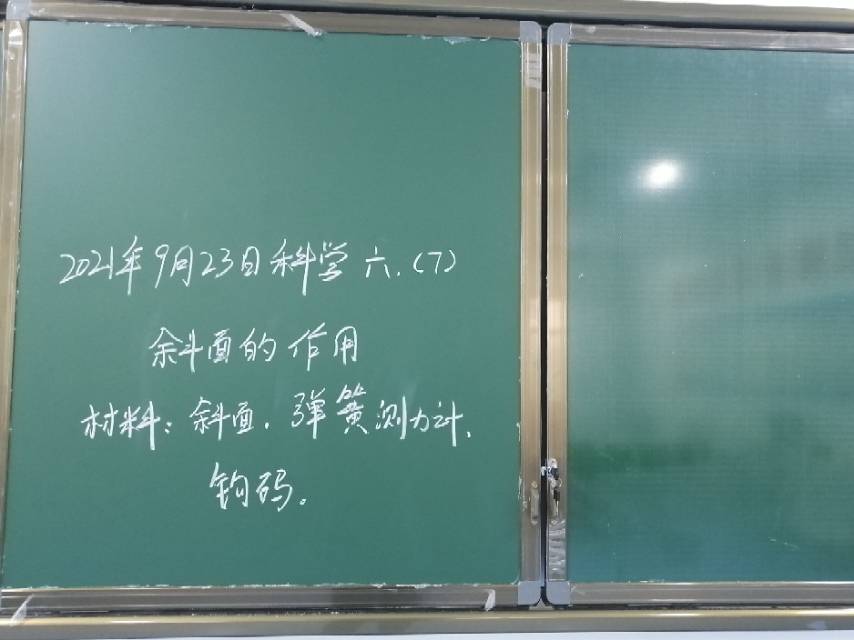 2021年9月23日科学 六.(7)
斜面的作用
材料：斜面．弹簧测力计．
钩码。